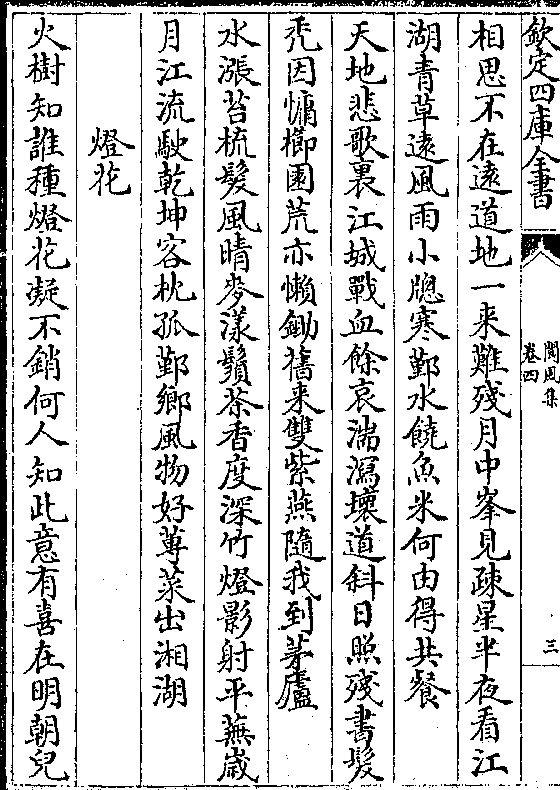 欽定四庫全書
閬風集
卷四
三
相思不在遠道地一来難殘月中峯見疎星半夜看江
湖青草遠風雨小牕寒鄞水饒魚米何由得共餐
天地悲歌裏江城戰血餘哀湍瀉壊道斜日照殘書髮
秃因慵櫛園荒亦懶鋤舊来雙紫燕隨我到茅廬
水漲苔梳髮風晴麥漾鬚茶香度深竹燈影射平蕪歳
月江流駛乾坤客枕孤鄞鄉風物好蓴菜出湘湖
燈花
火樹知誰種燈花凝不銷何人知此意有喜在明朝兒